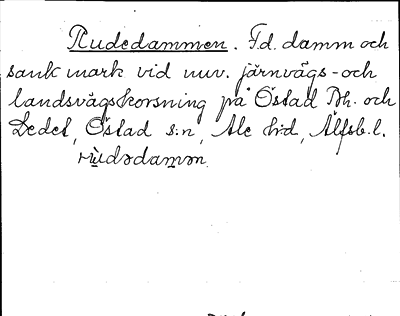 Rudedammen. F.d. damm och
sank mark vid nuv. järnvägs- och
landsvägskorsning på Östad Bh. och
Dedet, Östad s:n, Ale h:d, Älfsb.l.
rùdədam̥ən